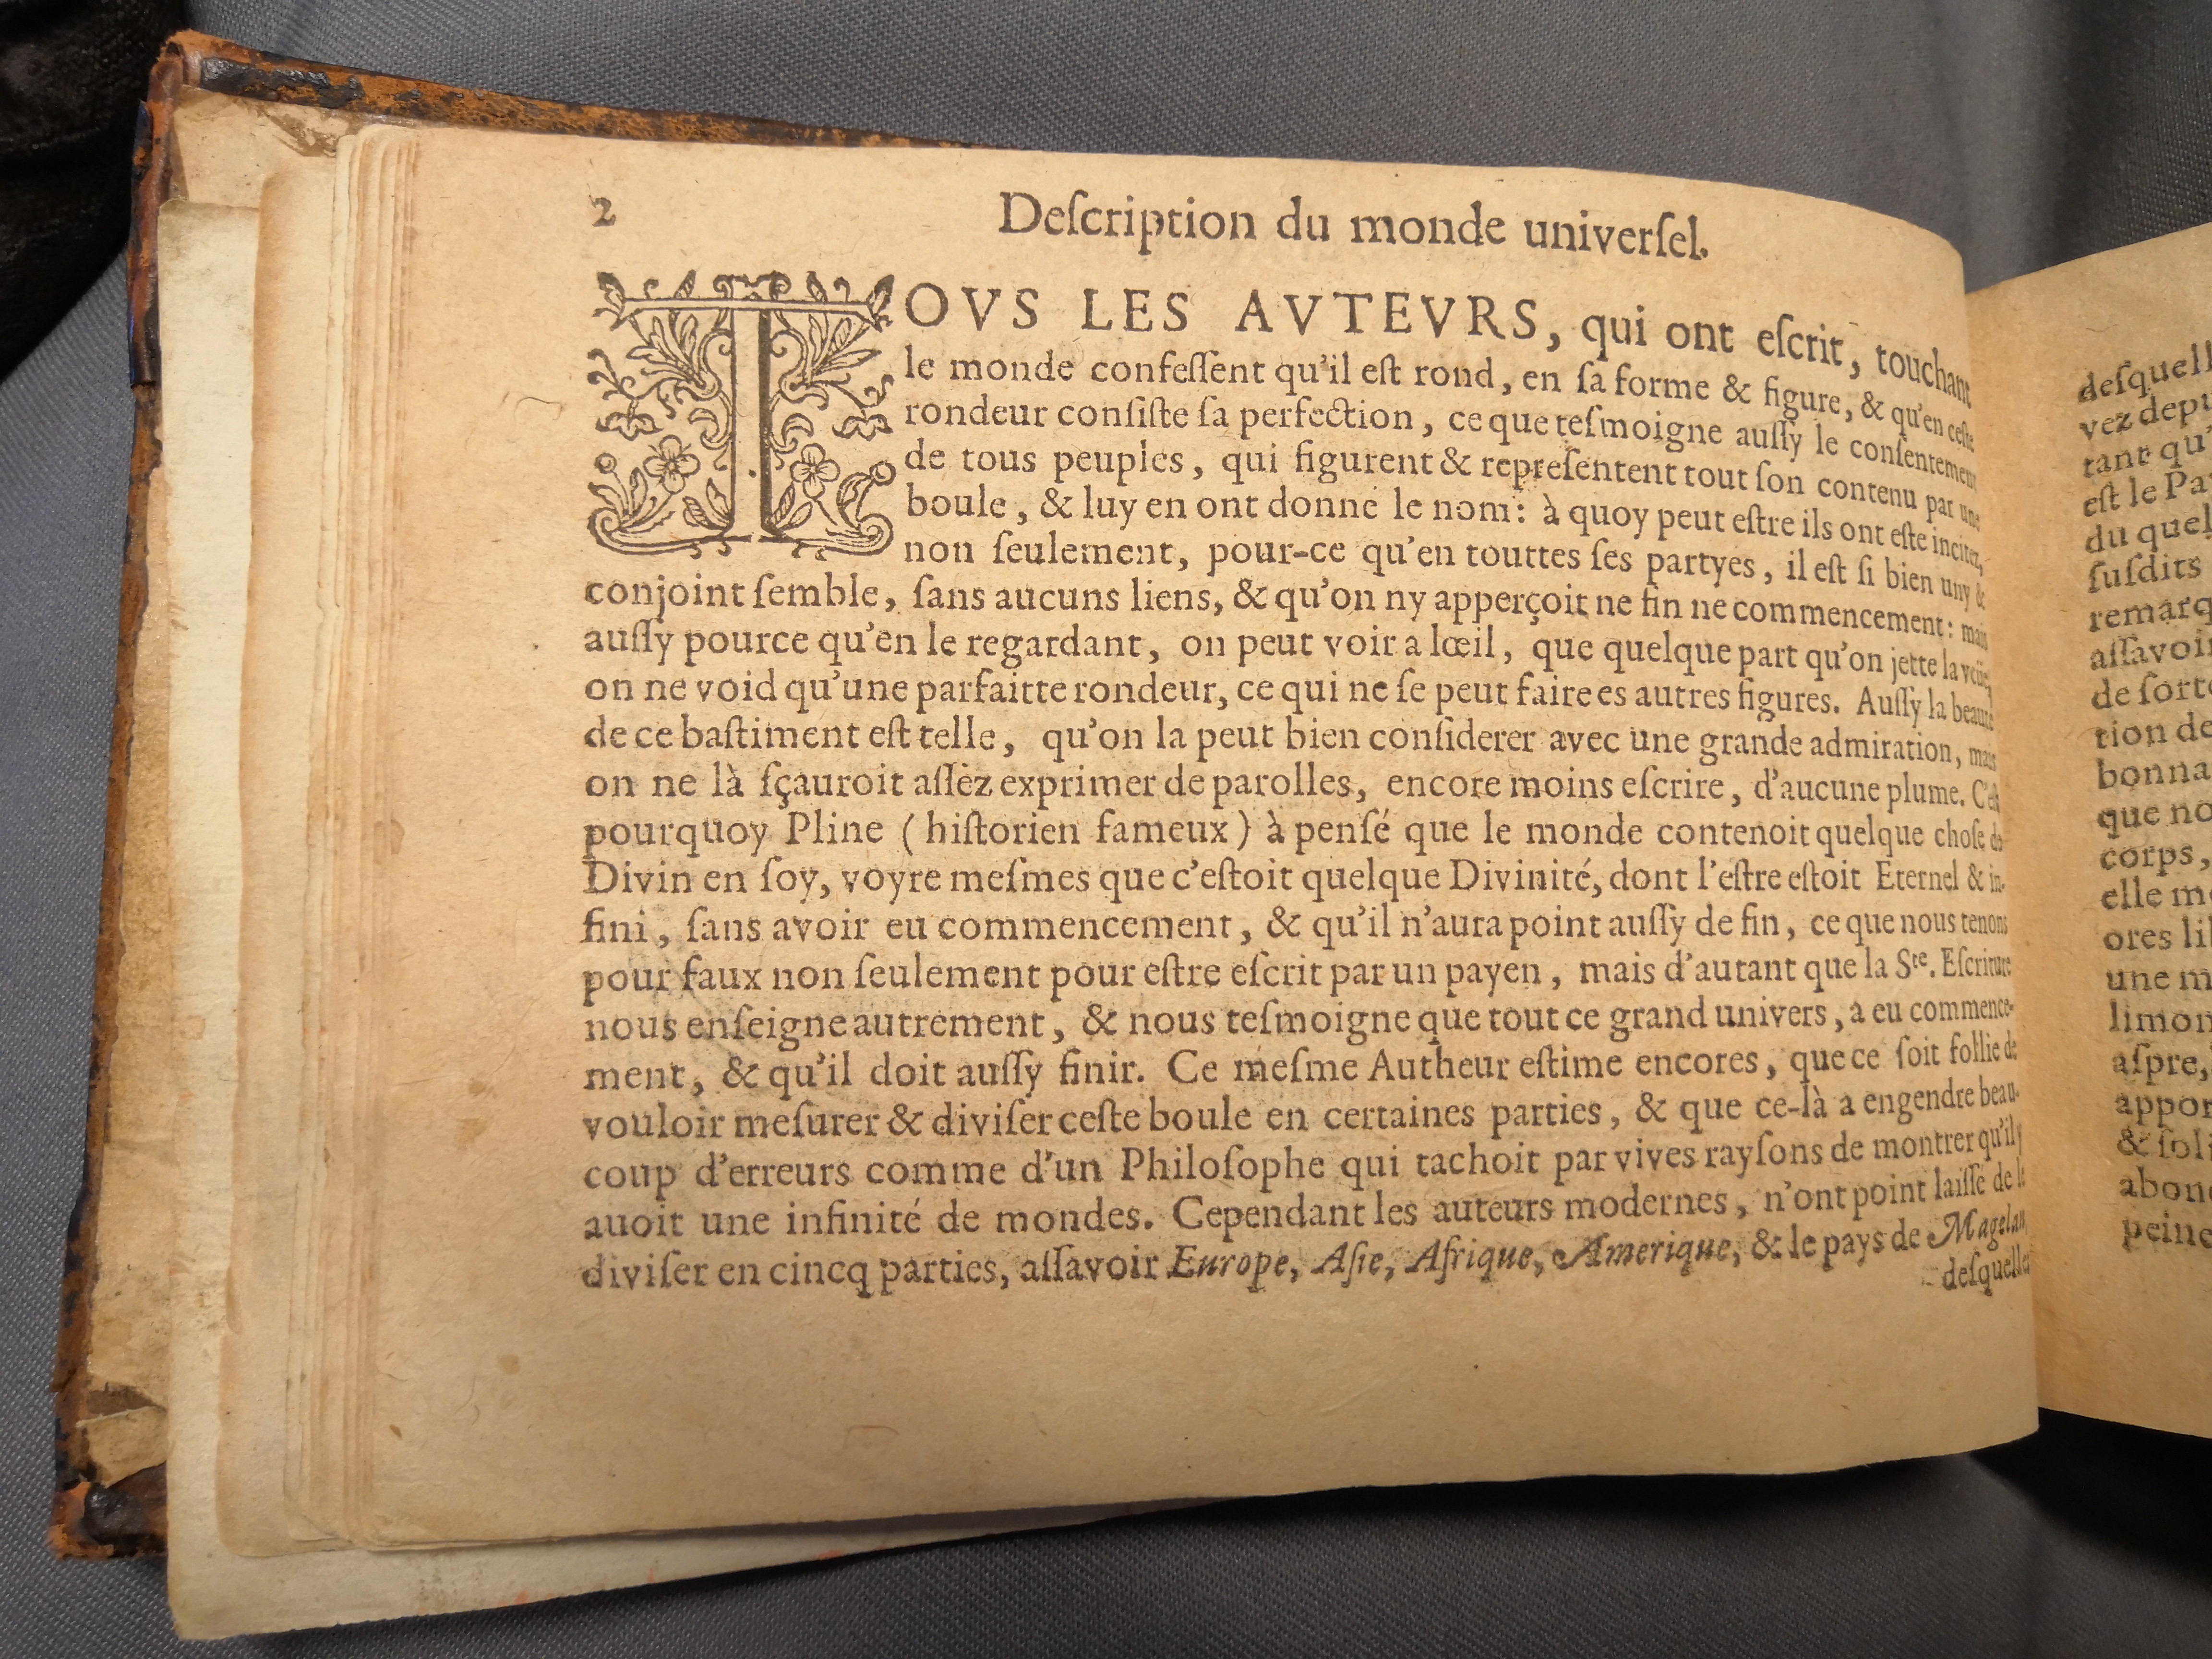 2
Deſcription du monde univerſel.
TOVS LES AVTEVRS, qui ont eſcrit, touchant
le monde confeſſent qu'il eſt rond, en ſa forme & figure, & qu'en ceſte
rondeur conſiſte ſa perfection, ce que teſmoigne auſſy le conſentement
de tous peuples, qui figurent & repreſentent tout ſon contenu par une
boule, & luy en ont donné le nom: à quoy peut eſtre ils ont eſte incitez,
non ſeulement, pour-ce qu'en touttes ſes partyes, il eſt ſi bien uny &
conjoint ſemble, ſans aucuns liens, & qu'on ny apperçoit ne fin ne commencement: mais
auſſy pource qu'en le regardant, on peut voir a lœil, que quelque part qu'on jette la veüe,
on ne void qu'une parfaitte rondeur, ce qui ne ſe peut faire es autres figures. Auſſy la beauté
de ce baſtiment eſt telle, qu'on la peut bien conſiderer avec une grande admiration, mais
on ne là ſçauroit aſſez exprimer de parolles, encore moins eſcrire, d'aucune plume. C'eſt
pourquoy Pline (hiſtorien fameux) à penſé que le monde contenoit quelque choſe de
Divin en ſoy, voyre meſmes que c'eſtoit quelque Divinité, dont l'eſtre eſtoit Eternel & in-
fini, ſans avoir eu commencement, & qu'il n'aura point auſſy de fin, ce que nous tenons
pour faux non ſeulement pour eſtre eſcrit par un payen, mais d'autant que la Ste. Eſcriture
nous enſeigne autrement, & nous teſmoigne que tout ce grand univers, a eu commence-
ment, & qu'il doit auſſy finir. Ce meſme Autheur eſtime encores, que ce ſoit follie de
vouloir meſurer & diviſer ceſte boule en certaines parties, & que ce-là a engendre beau-
coup d'erreurs comme d'un Philoſophe qui tachoit par vives rayſons de montrer qu'il y
auoit une infinité de mondes. Cependant les auteurs modernes, n'ont point laiſſe de le
diviſer en cincq parties, aſſavoir Europe, Aſie, Afrique, Amerique, & le pays de Magelan,
deſquelles
vez
tant qu'
eſt le
du quel
ſuſdits
aſſavoir
de
tion de
que
corps,
elle
ores
une
aſpre,
&
peine